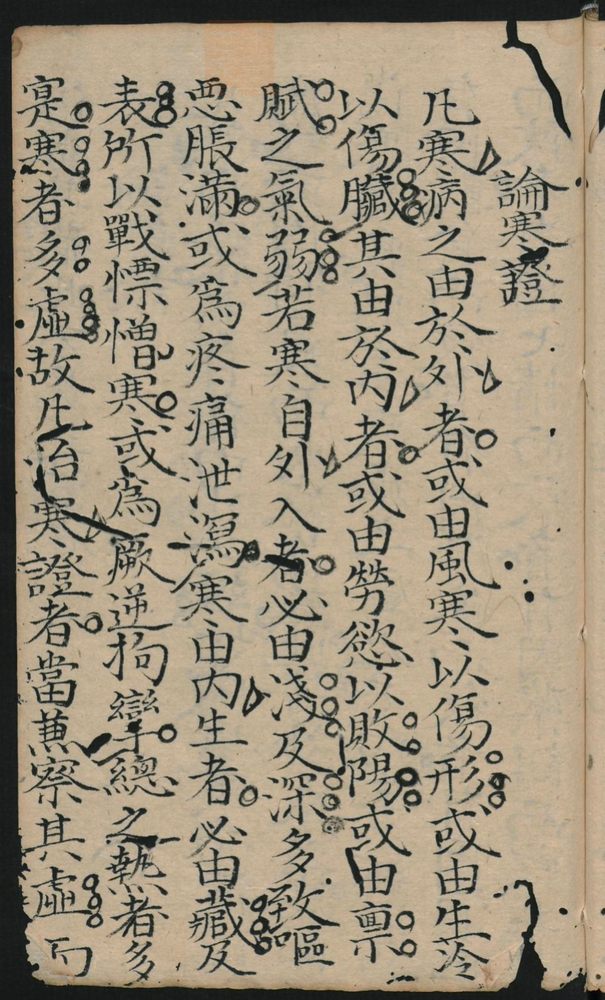 論寒證
凡寒病之由於外者或由風寒以傷形或由生冷
以傷臟其由於內者或由勞慾以敗陽或由禀
賦之氣弱若寒自外入者必由淺及深多致嘔
惡脹滿或為疼痛泄瀉寒由內生者必由藏及
表所以戰慄憎寒或為厥逆拘攣總之熱者多
寔寒者多虛故凡治寒證者當兼察其虛而